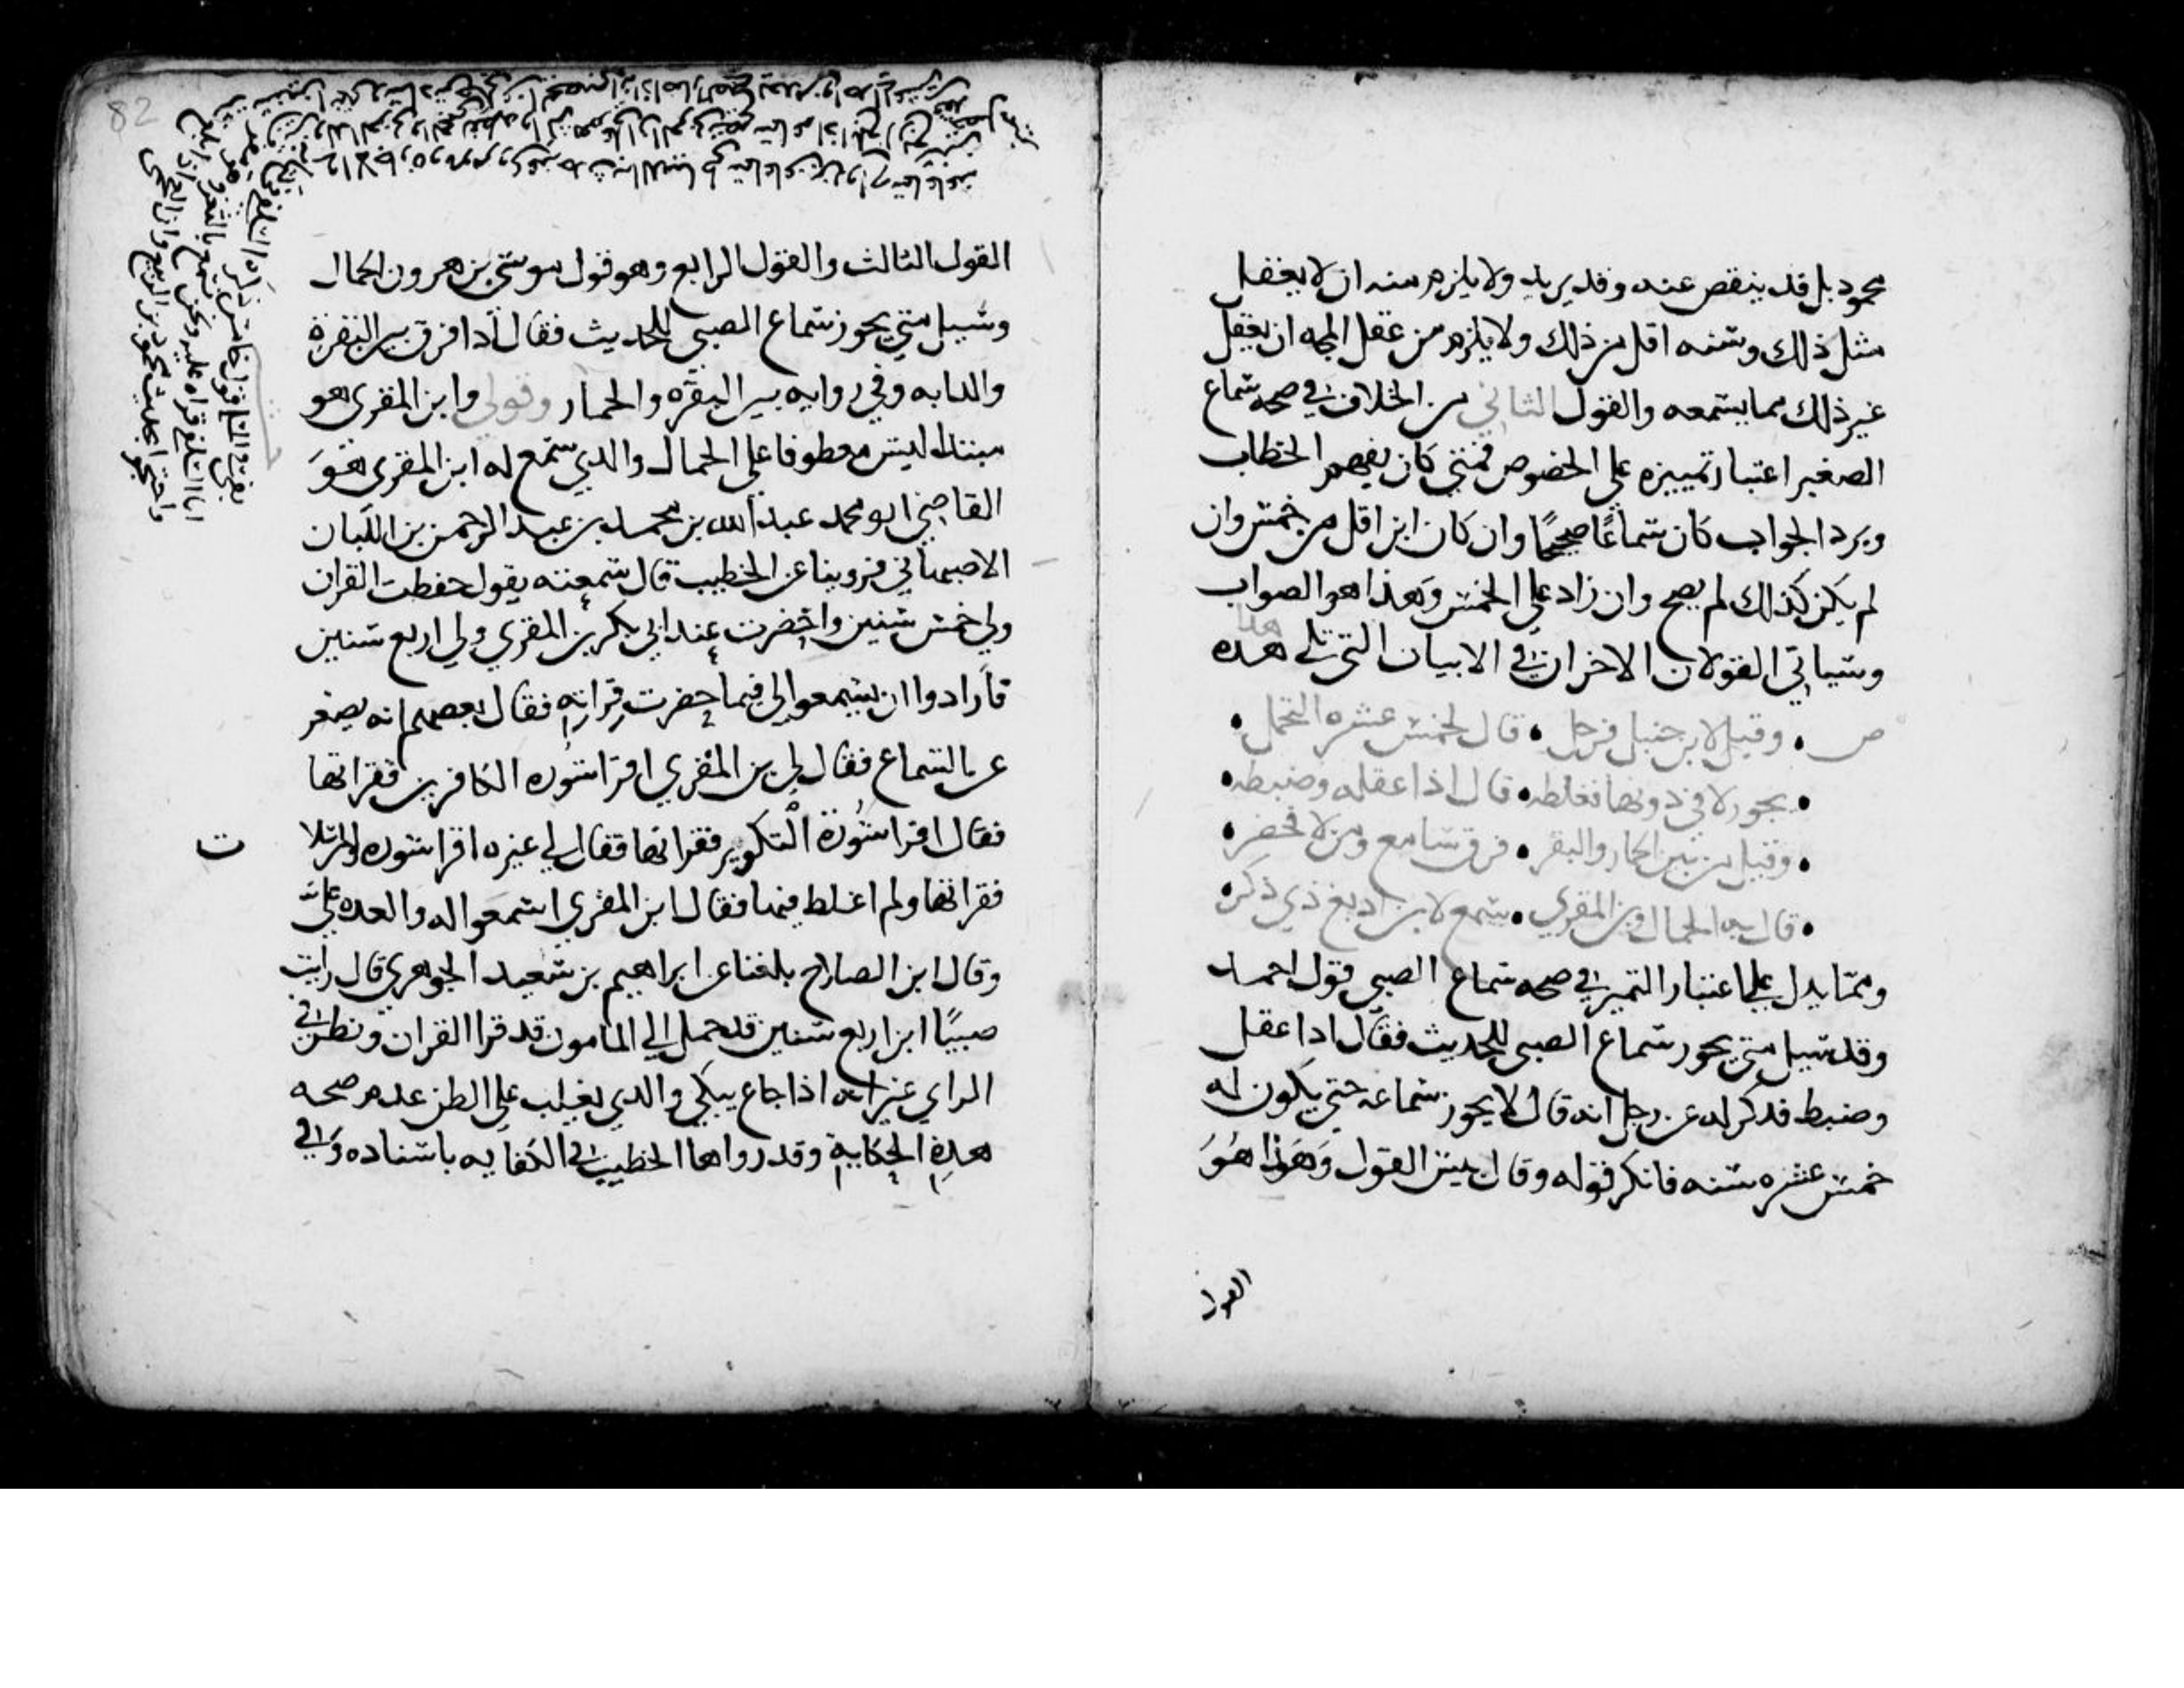 محمود بل قد ينقص عنه وقد يزيد ولا يلزم منه ان لا يعقل
مثل ذلك وسنه اقل من ذلك ولا يلزم من عقل المجه ان يعقل
غير ذلك مما يسمعه والقول الثاني من الخلاف في صحه سماع
الصغير اعتبار تمييزه علي الخصوص فمتي كان يفهم الخطاب
ويرد الجواب كان سماعًا صحيحًا وان كان ابن اقل من خمس وان
لم يكن كذلك لم يصح وان زاد علي الخمس وهذا هو الصواب
وسياتي القولان الاخران في الابيات التي تلي هذه
هذا
ص • وقيل لابن حنبل فرجل • قال لخمس عشره التحمل •
• يجوز لا في دونها فغلطه • قال اذا عقله وضبطه •
• وقيل من بين الحمار والبقر • فرق سامع ومن لا فحضر •
• قال به الحمال وبن المقري • سمع لابن اربع ذي ذكر •
ومما يدل علي اعتبار التمييز في صحه سماع الصبي قول احمد
وقد سيل متي يجوز سماع الصبي للحديث فقال اذا عقل
وضبط فذكر له عن رجل انه قال لا يجوز سماعه حتي يكون له
خمس عشره سنه فانكر قوله وقال بيس القول وهذا هو
القول
82
القول الثالث والقول الرابع وهو قول موسى بن هرون الحمال
وسيل متي يجوز سماع الصبي للحديث فقال اذا فرق بين البقرة
والدابه وفي روايه بين البقره والحمار وقولي وابن المقري هو
مبتدا ليس معطوفا علي الحمال والذي سمع له ابن المقري هو
القاضي ابو محمد عبد الله بن محمد بن عبد الرحمن بن اللبان
الاصبهاني فروينا عن الخطيب قال سمعته يقول حفظت القران
ولي خمس سنين واحضرت عند ابي بكر بن المقري ولي اربع سنين
فارادوا ان يسمعوا لي فيما حضرت قراته فقال بعضهم انه يصغر
عن السماع فقال لي بن المقري اقرا سوره الكافرين فقراتها
فقال اقرا سورة التكوير فقراتها فقال لي غيره اقرا سوره والمرسلات
فقراتها ولم اغلط فيها فقال ابن المقري اسمعوا له والعهده علي
وقال ابن الصلاح بلغنا عن ابراهيم بن سعيد الجوهري قال رايت
صبيًا ابن اربع سنين قد حمل الي المامون قد قرا القران ونظر في
الراي غير انه اذا جاع يبكي والذي يغلب علي الظن عدم صحه
هذه الحكايه وقد رواها الخطيب في الكفايه باسناده وفي